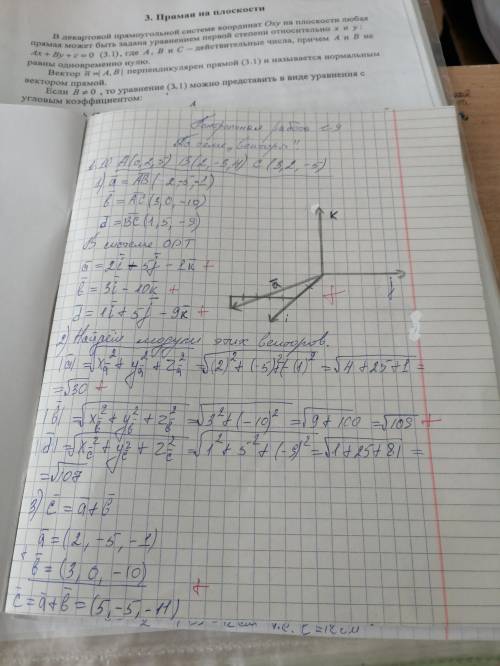 3. Прямая на плоскости
В декартовой прямоугольной системе координат Oxy на плоскости любая
прямая может быть задана уравнением первой степени относительно x и y :
Ax + By + c = 0 (3.1), где A, B и C – действительные числа, причем A и B не
равны одновременно нулю.
Вектор n̄ = (A, B) перпендикулярен прямой (3.1) и называется нормальным
вектором прямой.
Если B ≠ 0, то уравнение (3.1) можно представить в виде уравнения с
угловым коэффициентом:
A
Контрольная работа
По теме „Векторы"
A(0,2,5) B(2,-3,4) C(3,2,-5)
1) ā = AB̄ (2,-5,-1)
b̄ = AC̄ (3,0,-10)
d̄ = BC̄ (1,5,-9)
В системе ОРТ
ā = 2ī - 5j̄ - 1k̄ +
b̄ = 3ī - 10k̄ +
d̄ = 1ī + 5j̄ - 9k̄ +
k
ā
j
i
+
2) Найдём модули этих векторов.
|ā| = √x²ₐ + y²ₐ + z²ₐ = √(2)² + (-5)² + (-1)² = √4 + 25 + 1 =
= √30 +
|b̄| = √x²_b + y²_b + z²_b = √3² + (-10)² = √9 + 100 = √109 +
|d̄| = √x²_c + y²_c + z²_c = √1² + 5² + (-9)² = √1 + 25 + 81 =
= √107
3) c̄ = ā + b̄
ā = (2, -5, -1)
+ b̄ = (3, 0, -10)
c̄ = ā + b̄ = (5, -5, -11) +